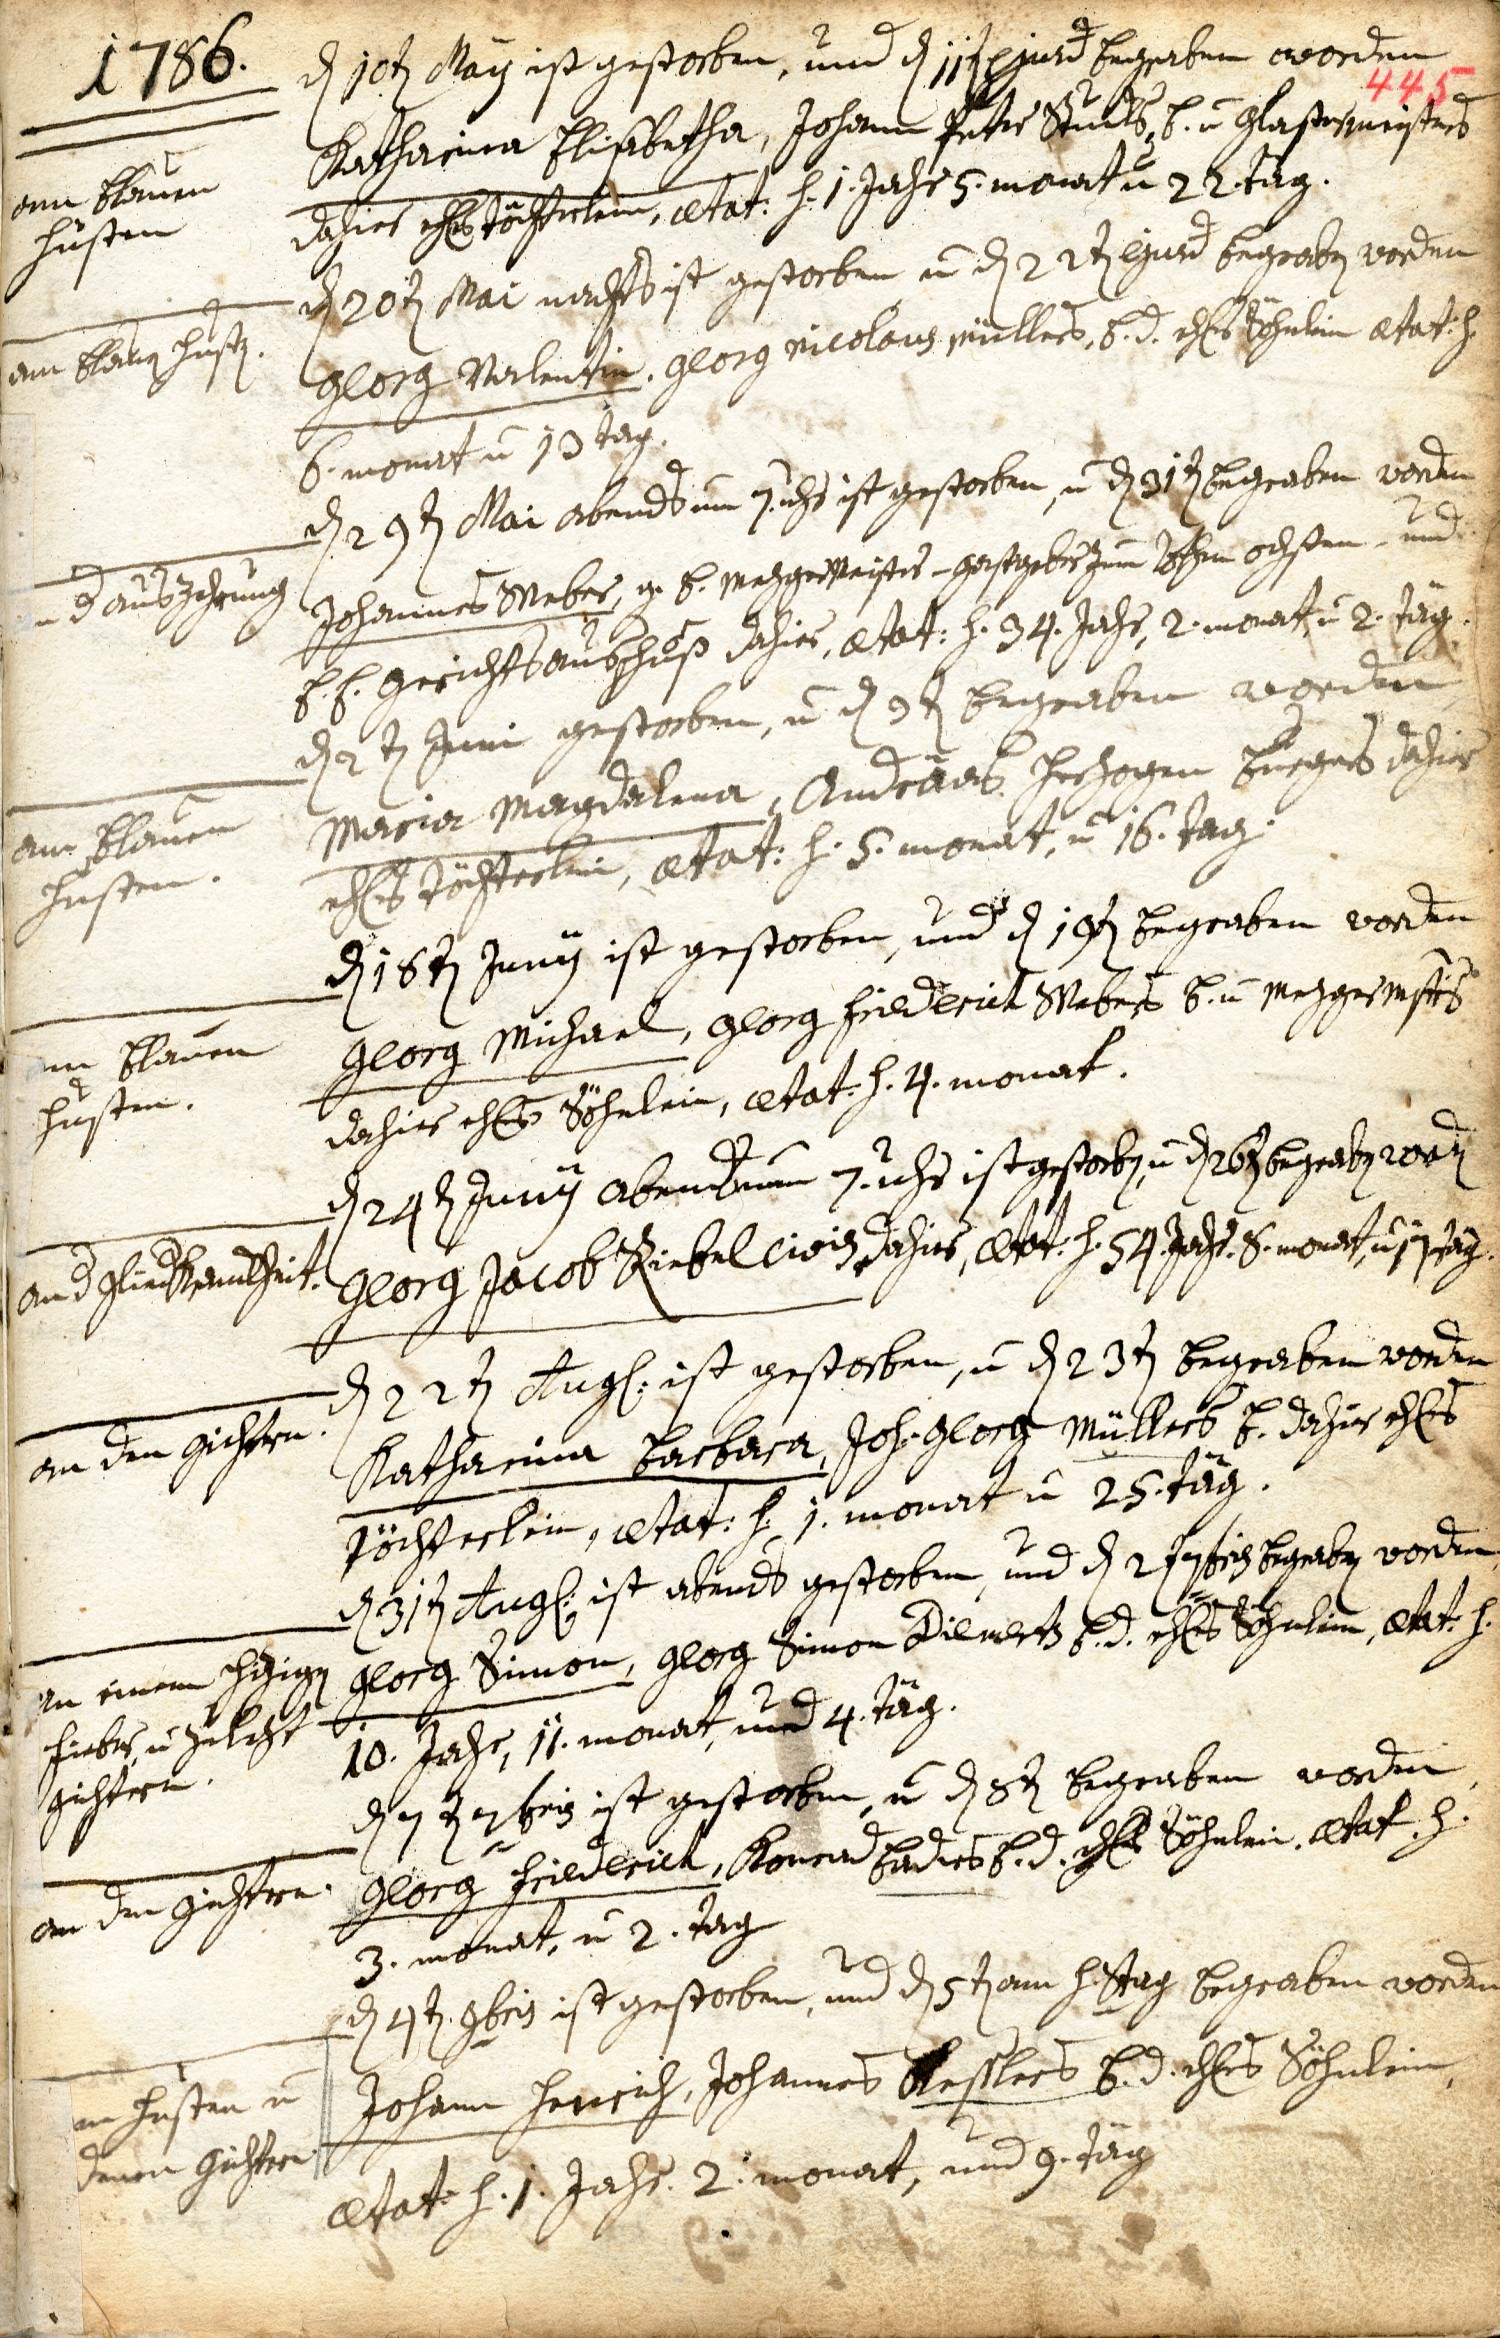 1786.
445
d 10t May ist gestorben, und d 11t ejusd begraben worden
am blauen
husten
Katharina Elisabetha, Johann Peter b. u Glasermeisters
dahier ehl töchterlein, ætat: h. 1. Jahr 5. monat u 22. täg.
am blau hust.
d 20t Mai nachts ist gestorben u d 22t ejusd begrab worden
Georg Valentin, Georg Nicolaus Müllers, b. d. ehl Söhnlein ætat: h.
6. monat u 13 tag.
d auszehrung
d 29t Mai abends um 7. uhr ist gestorben, u d 31t begraben worden
Johannes Weber, g. b. Mezgermeister - gastgeber zum rothen ochsen - und
E. E. Gerichts ausschuß dahier, ætat: h. 34. Jahr, 2. monat, u 2. täg.
am blauen
husten.
d 2t Juni gestorben, u d 3t begraben worden
Maria Magdalena, Andräas Herzogen burgers dahier
ehl töchterlein, ætat: h. 5. monat, u 16. tag.
am blauen
husten.
d 18t Juny ist gestorben, und d 19t begraben worden
Georg Michael, Georg Friederich Webers b. u Mezgermstrs
dahier ehl Söhnlein, ætat. h. 4. monat.
an d gliedkrankheit.
d 24t Juny abends um 7. uhr ist gestorb, u d 26t begrab word
Georg Jacob Riebel civis dahier, ætat. h. 54 Jahr. 8. monat, u 17 täg.
an den gichtern.
d 22t Aug: ist gestorben, u d 23t begraben worden
Katharina Barbara, Joh. Georg Müllers b. dahier ehl
töchterlein, ætat: h. 1. monat u 25. täg.
an einem hizig
fieber, u zulezt
gichtern.
d 31t Aug: ist abends gestorben, und d 2t 7bris begrab worden
Georg Simon, Georg Simon b. d. ehl Söhnlein, ætat. h.
10. Jahr, 11. monat, und 4. täg.
an den gichtern.
d 7t 7bris ist gestorben, u d 8t begraben worden,
Georg Friederich, Konrad Baders b. d. ehl Söhnlein. ætat. h.
3. monat, u 2. tag
am husten u
denen gichtern
d 4t. 9bris ist gestorben, und d 5t am begraben worden
Johann Henrich, Johannes Kesslers b. d. ehl Söhnlein,
ætat. h. 1. Jahr. 2. monat, und 9. täg